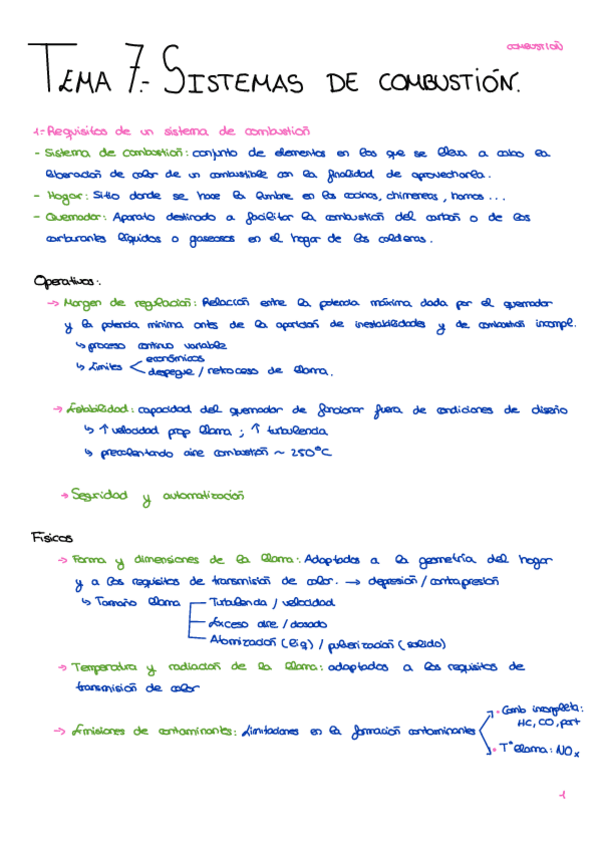 COMBUSTIÓN
TEMA 7.- SISTEMAS DE COMBUSTIÓN.
1.- Requisitos de un sistema de combustión
- Sistema de combustión: conjunto de elementos en los que se lleva a cabo la
liberación de calor de un combustible con la finalidad de aprovecharla.
- Hogar: Sitio donde se hace la lumbre en las cocinas, chimeneas, hornos ...
- Quemador: Aparato destinado a facilitar la combustión del carbón o de los
carburantes líquidos o gaseosos en el hogar de las calderas.
Operativos:
→ Margen de regulación: Relación entre la potencia máxima dada por el quemador
y la potencia mínima antes de la aparición de inestabilidades y de combustión incompl.
↳ proceso continuo variable
↳ Límites < económicos
despegue / retroceso de llama.
→ Estabilidad: capacidad del quemador de funcionar fuera de condiciones de diseño
↳ ↑ velocidad prop llama ; ↑ turbulencia
↳ precalentando aire combustión ~ 250°C
→ Seguridad y automatización
Físicos
→ Forma y dimensiones de la llama: Adaptados a la geometría del hogar
y a los requisitos de transmisión de calor. → depresión / contrapresión
↳ Tamaño llama — Turbulencia / velocidad
— Exceso aire / dosado
— Atomización (líq) / pulverización (sólido)
→ Temperatura y radiación de la llama: adaptados a los requisitos de
transmisión de calor
→ Emisiones de contaminantes: Limitaciones en la formación contaminantes
• Comb incompleta:
HC, CO, part
• Tª llama: NOx
1